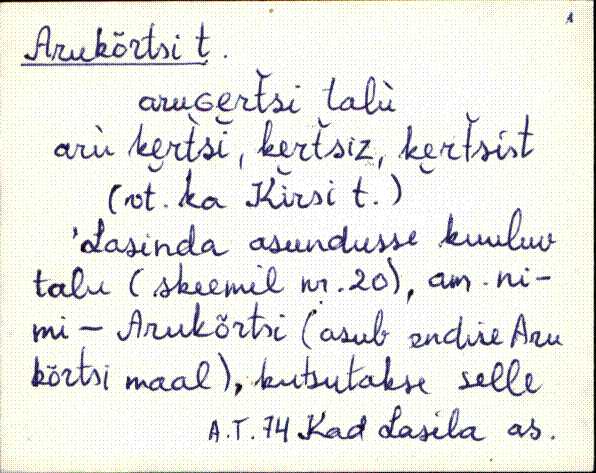 1
Arukõrtsi t.
aruɢe̮rt̆si talù
arù ke̮rt̆si, ke̮rt̆siz, ke̮rt̆sist
(vt. ka Kirsi t.)
'Lasinda asundusse kuuluv
talu (skeemil nr. 20), am. ni-
mi - Arukõrtsi (asub endise Aru
kõrtsi maal), kutsutakse selle
A.T. 74 Kad Lasila as.